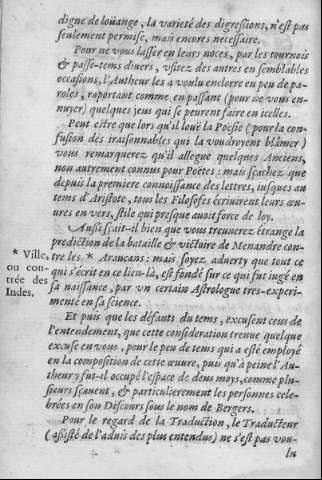 digne de loüange, la varieté des digreßions, n'est pas
seulement permise, mais encores necessaire.
Pour ne vous lasser en leurs noces, par les tournois
& passe-tems diuers, vsitez des autres en semblables
occasions, l'Autheur les a voulu enclorre en peu de pa-
roles, raportant comme en passant (pour ne vous en-
nuyer) quelques jeus qui se peurent faire en icelles.
Peut estre que lors qu'il louë la Poësie (pour la con-
fusion des iraisonnables qui la voudroyent blâmer)
vous remarquerez qu'il allegue quelques Anciens,
non autrement connus pour Poëtes: mais sçachez que
depuis la premiere connoissance des lettres, iusques au
tems d'Aristote, tous les Filosofes écriuirent leurs œu-
ures en vers, stile qui presque auoit force de loy.
Aussi sçait-il bien que vous treuuerez étrange la
prediction de la bataille & victoire de Menandre con-
tre les * Araucans: mais soyez aduerty que tout ce
qui s'écrit en ce lieu-là, est fondé sur ce qui fut iugé en
sa naissance, par vn certain Astrologue tres-experi-
menté en sa science.
* Ville,
ou con-
trée des
Indes.
Et puis que les défauts du tems, excusent ceus de
l'entendement, que cette consideration treuue quelque
excuse en vous, pour le peu de tems qui a esté employé
en la composition de cette œuure, puis qu'à peine l'Au-
theur y fut-il occupé l'espace de deus moys, comme plu-
sieurs sçauent, & particulierement les personnes cele-
brées en son Discours sous le nom de Bergers.
Pour le regard de la Traduction, le Traducteur
(assisté de l'aduis des plus entendus) ne s'est pas vou-
lu